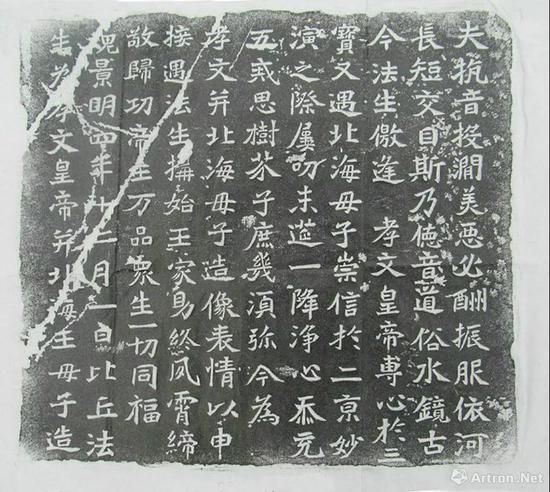 夫抗音投澗美惡必酬振服依河
長短交目斯乃德音道俗水鏡古
今法生儌逢 孝文皇帝專心於三
寶又遇北海母子崇信於二京妙
演之際屢叨末筵一降淨心忝充
五戒思樹芥子庶幾須彌今為
孝文并北海母子造像表情以申
接遇法生構始王家易終夙霄締
敬歸功帝生万品衆生一切同福
魏景明四年十二月一日比丘法
生為孝文皇帝并北海王母子造
Artron.Net